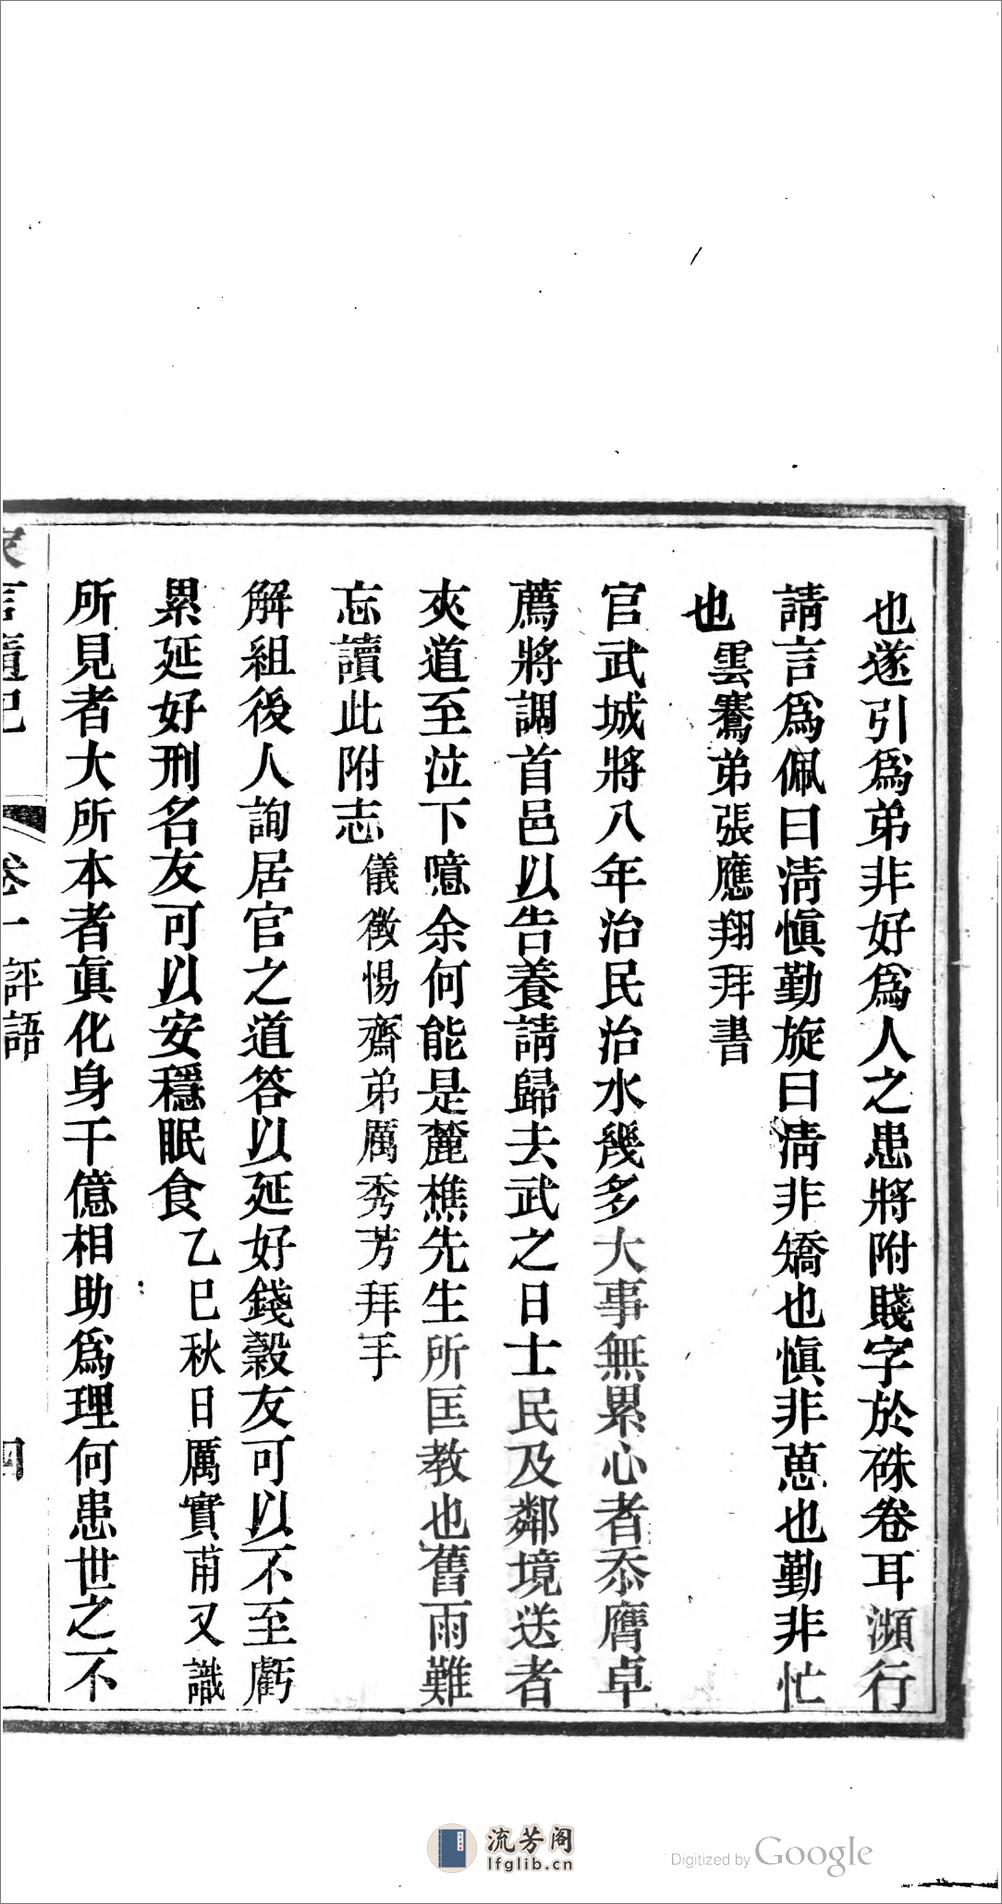 也遂引爲弟非好爲人之患將附賤字於硃卷耳瀕行
請言爲佩曰淸愼勤旋曰淸非矯也愼非葸也勤非忙
也 雲鶱弟張應翔拜書
官武城將八年治民治水幾多大事無累心者忝膺卓
薦將調首邑以告養請歸去武之日士民及鄰境送者
夾道至泣下噫余何能是麓樵先生所匡教也舊雨難
忘讀此附志 儀徵惕齋弟厲秀芳拜手
解組後人詢居官之道答以延好錢穀友可以不至虧
累延好刑名友可以安穩眠食 乙巳秋日厲實甫又識
所見者大所本者眞化身千億相助爲理何患世之不
卷一 評語 四
流芳阁
lfglib.cn
Digitized by Google